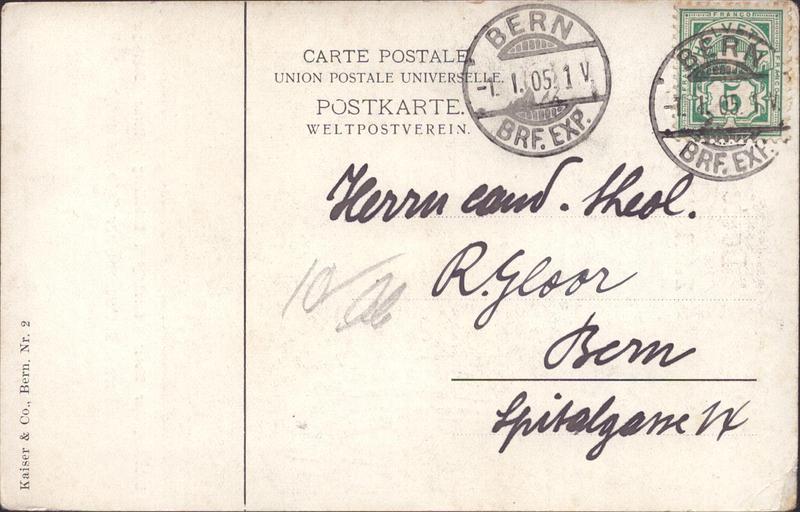 CARTE POSTALE.
UNION POSTALE UNIVERSELLE.
POSTKARTE.
WELTPOSTVEREIN.
BERN
-1. I. 05. 1 V.
BRF. EXP.
FRANCO
HELVETIA
5
BERN
-1. I. 05. 1 V.
BRF. EXP.
Herrn cand. theol.
R. Gloor
Bern
Spitalgasse
10/06
Kaiser & Co., Bern. Nr. 2